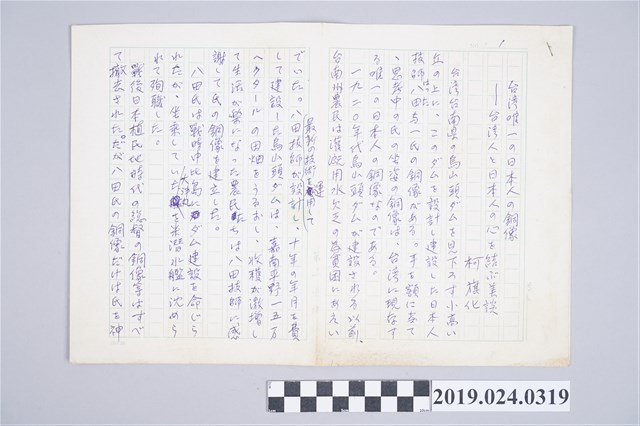 台湾唯一の日本人の銅像
──台湾人と日本人の心を結ぶ美談
柯旗化
台湾台南県の烏山頭ダムを見下ろす小高い
丘の上に、このダムを設計し建設した日本人
技師八田与一氏の銅像がある。手を額に当て
、思考中の氏の坐姿の銅像は、台湾に現存す
る唯一の日本人の銅像なのである。
一九二〇年代烏山頭ダムが建設される以前、
台南州農民は灌漑用水欠乏の為貧困にあえい
でいた。八田技師が設計し、十年の年月を費
最新の技術を運用して
して建設した烏山頭ダムは、嘉南平野一五万
ヘクタールの田畑をうるおし、収穫が激増し
て生活が楽になった農民たちは八田技師に感
謝して氏の銅像を建立した。
八田氏は戦時中比島にダム建設を命じら
れたが、坐乗していた大洋丸を米潜水艦に沈めら
れて殉職した。
戦後日本植民地時代の総督の銅像等はすべ
て撤去された。だが八田氏の銅像だけは氏を神
2019.024.0319